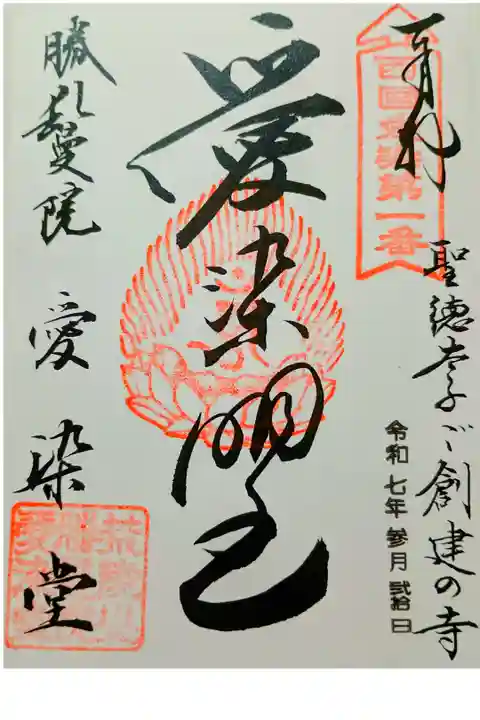 奉拝
西国愛染第一番
聖徳太子ご創建の寺
令和七年参月弐拾日
愛染明王
勝鬘院
愛染堂